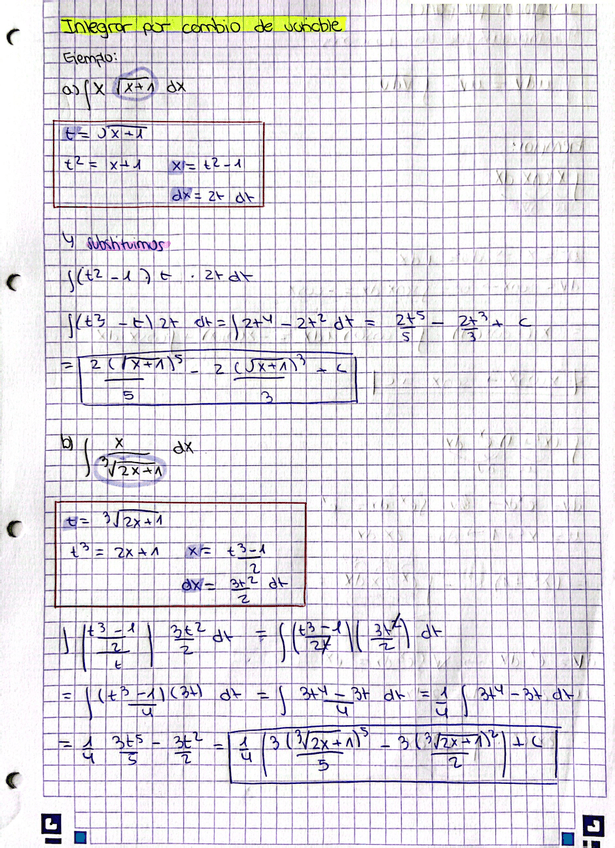 Integrar por cambio de variable
Ejemplo:
a) ∫ x √(x+1) dx
t = √(x+1)
t² = x+1 x = t²-1
dx = 2t dt
y substituimos
∫(t²-1) t · 2t dt
∫(t³ - t) 2t dt = ∫ 2t⁴ - 2t² dt = 2t⁵/5 - 2t³/3 + c
= 2(√(x+1))⁵/5 - 2(√(x+1))³/3 + c
b) ∫ x/∛(2x+1) dx
t = ³√(2x+1)
t³ = 2x+1 x = (t³-1)/2
dx = 3t²/2 dt
∫ ((t³-1)/2 / t) 3t²/2 dt = ∫ ((t³-1)/2t)(3t²/2) dt
= ∫ (t³-1)(3t)/4 dt = ∫ (3t⁴-3t)/4 dt = 1/4 ∫ 3t⁴-3t dt
= 1/4 3t⁵/5 - 3t²/2 = 1/4 (3(³√(2x+1))⁵/5 - 3(³√(2x+1))²/2) + c